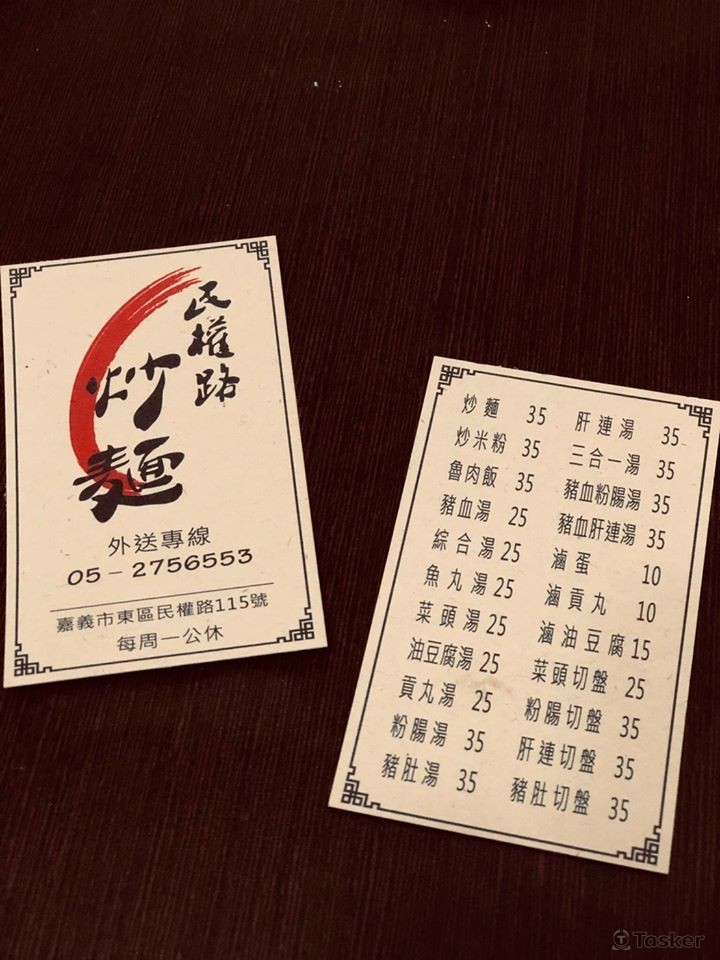 民權路
炒麵
外送專線
05-2756553
嘉義市東區民權路115號
每周一公休
炒麵 35
炒米粉 35
魯肉飯 35
豬血湯 25
綜合湯 25
魚丸湯 25
菜頭湯 25
油豆腐湯 25
貢丸湯 25
粉腸湯 35
豬肚湯 35
肝連湯 35
三合一湯 35
豬血粉腸湯 35
豬血肝連湯 35
滷蛋 10
滷貢丸 10
滷油豆腐 15
菜頭切盤 25
粉腸切盤 35
肝連切盤 35
豬肚切盤 35
Tasker